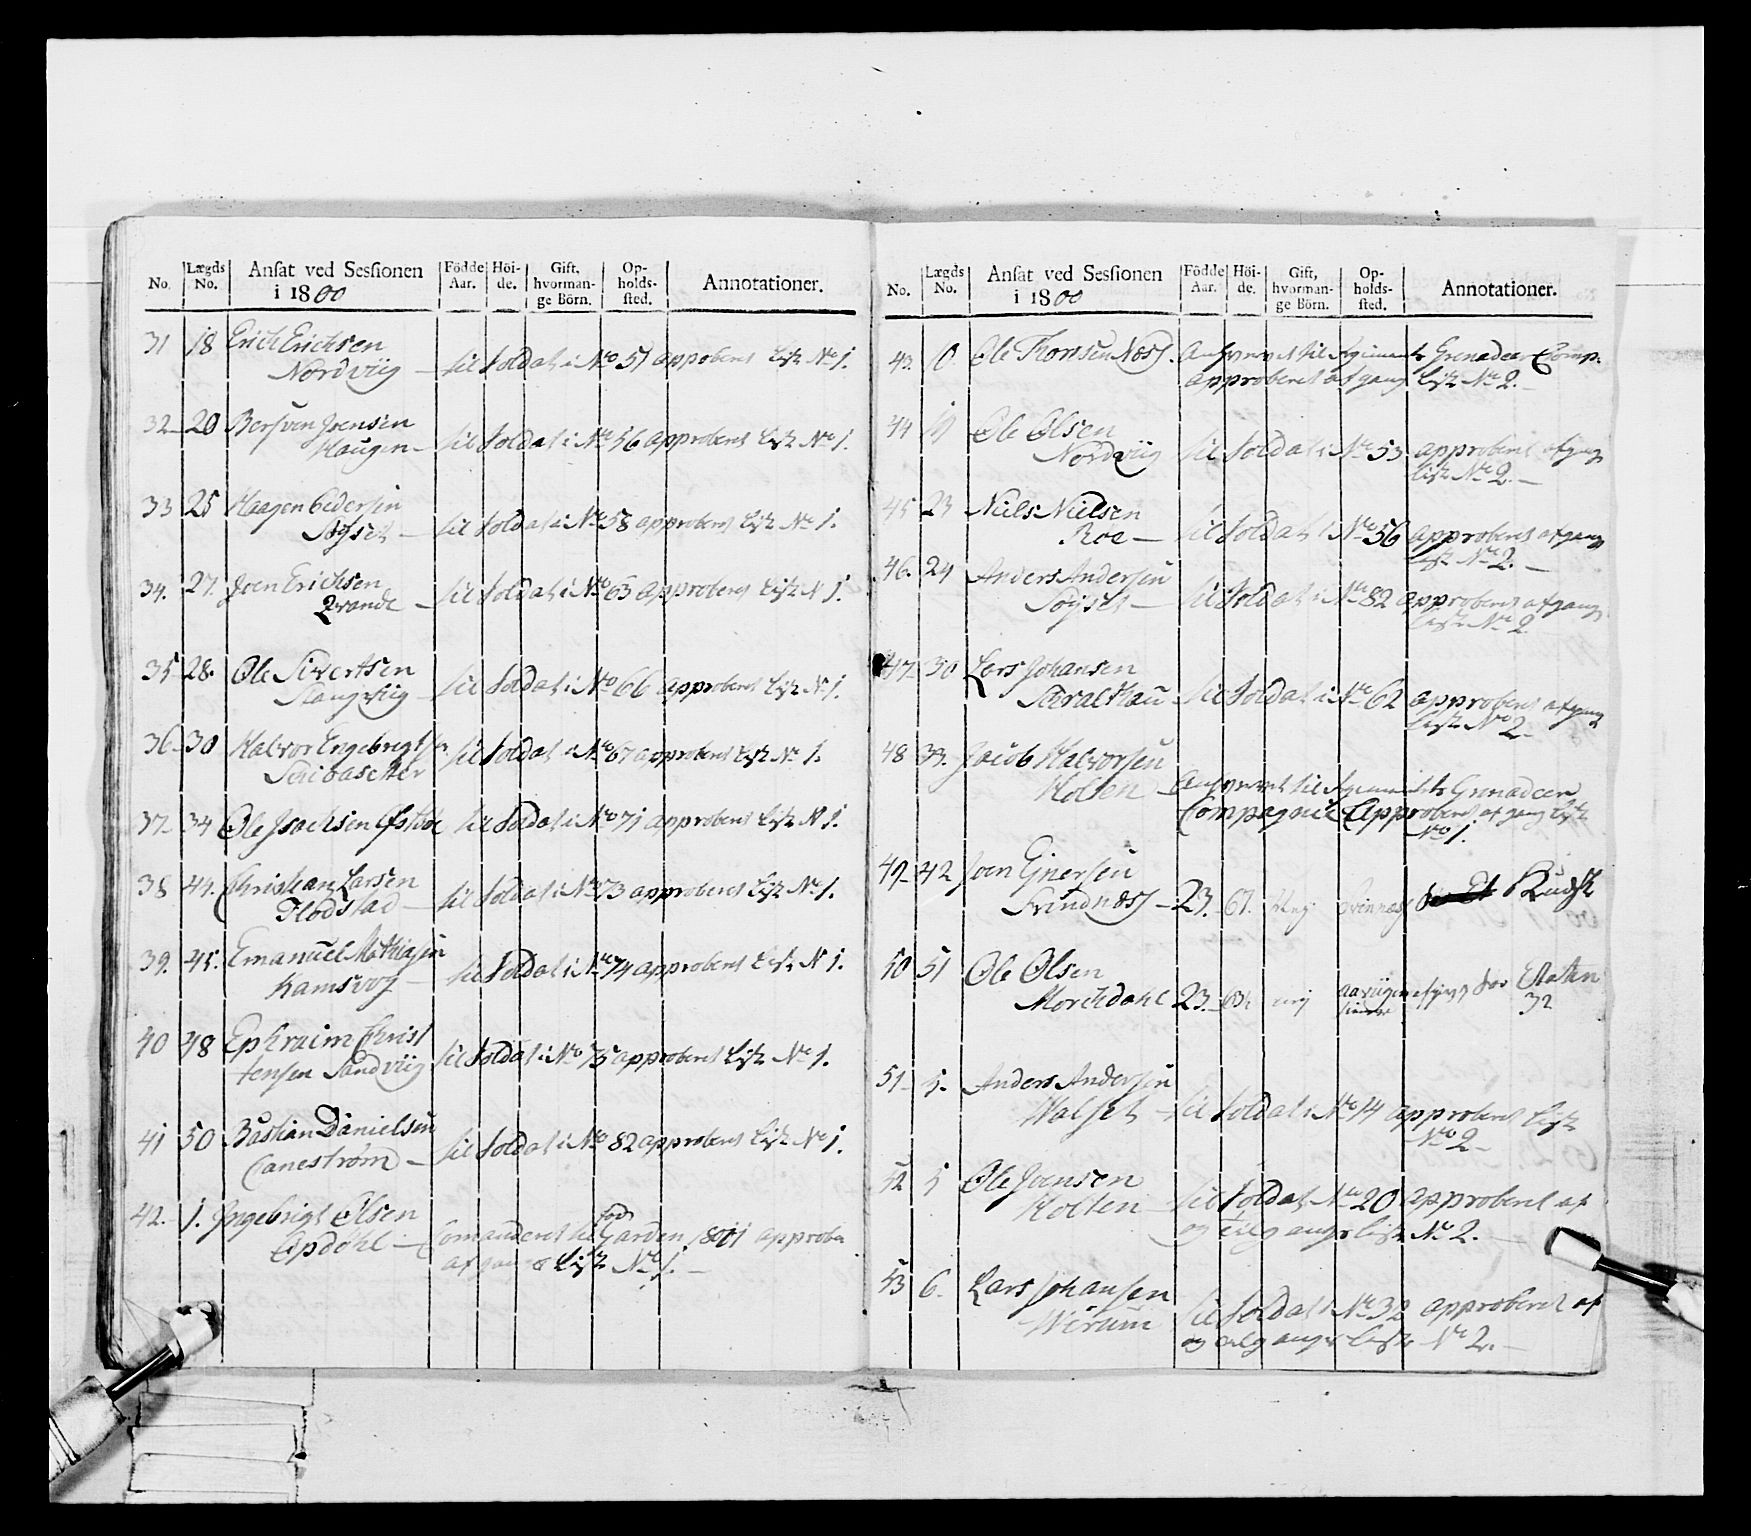 No.
Lægds No.
Ansat ved Sessionen i 1800
Födde Aar.
Höi-de.
Gift, hvorman-ge Börn.
Op-holds-sted.
Annotationer.
31 18 Erich Erichsen
Nordviig – til Soldat i No 51 approberet Liste No 1.
32 20 Bersven Joensen
Haugen – til Soldat i No 56 approberet Liste No 1.
33 25 Haagen Pedersen
Søyset – til Soldat i No 58 approberet Liste No 1.
34. 27. Joen Erichsen
Qvande – til Soldat i No 63 approberet Liste N 1.
35 28. Ole Sivertsen
Stangviig – til Soldat i No 66 approberet Liste N 1.
36 30 Halvor Engebrigtsen til Soldat i No 67 approberet Liste No 1.
37 34 Ole Isachsen til Soldat i No 71 approberet Liste N 1.
38 44. Christian Larsen
Flodstad – til Soldat i No 73 approberet Liste No 1.
39. 45. Emanuel Mathiasen
Ramsvog – til Soldat i No 74 approberet Liste N 1.
40 48 Ephraim Christ
tensen Sandviig til Soldat i No 75 approberet Liste No 1.
41 50 Bastian Danielsen
Canestrøm – til Soldat i No 82 approberet Liste No 1.
42. 1. Ingebrigt Olsen
Comanderet til Garden 1801 approbe
Liste No 1. –
No.
Lægds No.
Ansat ved Sessionen i 1800
Födde Aar.
Höi-de.
Gift, hvorman-ge Börn.
Op-holds-sted.
Annotationer.
43. Ole Thomsen Næss. til Grenadeer Comp:
approberet afgang Liste No 2. –
44 Ole Olsen
Nordviig til Soldat i No 53 approberet afgang
liste No 2. –
45 23 Niels Nielsen
Roe – til Soldat i No 56 approberet afgang
Liste No 2. –
46. 24 Anders Andersen
Søyset – til Soldat i No 82 approberet afgang
Liste No 2
47 30 Lars Johansen
til Soldat i No 62 approberet afgang
liste No 2 –
48 33. Jacob Halvorsen
Holten – til Grenadeer
Compagnie Approberet afgang Liste
No 1.
49 42 Joen
– 23. 67.
50 51 Ole Olsen
Morchdahl 23.
for Etaten
32
51 5. Anders Andersen
Walset – til Soldat i No 14 approberet Liste
No 2 –
52 5 Ole Joensen
Holten – til Soldat No 20 approberet af
og tilgangs liste No 2. –
53 6. Lars Johansen
til Soldat No 32 approberet af
og tilgangs liste No 2. –